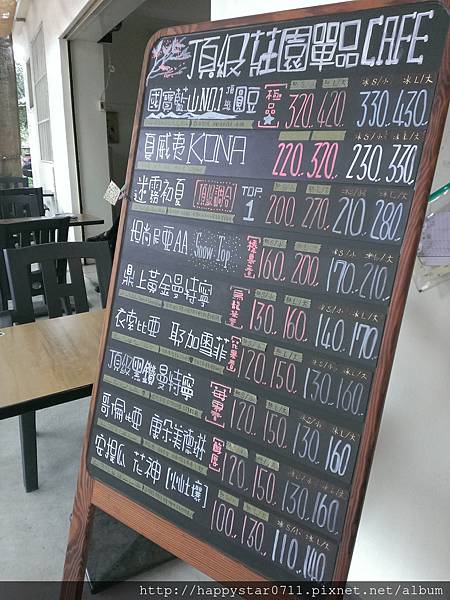 頂級莊園單品CAFE
國寶藍山NO.1 頂級 圓豆 極品 320. 420. 330. 430.
夏威夷 KONA 220. 320. 230. 330.
迷霧初夏 TOP 1 200. 270. 210. 280.
坦尚尼亞AA Snow Top 160. 200. 170. 210.
鼎上黃金曼特寧 130. 160. 140. 170.
衣索比亞 耶加雪菲 120. 150. 130. 160.
頂級黑鑽曼特寧 120. 150. 130. 160
哥倫比亞 康朵美德林 120. 150. 130. 160.
安提瓜 花神 100. 130. 110. 140.
http://happystar0711.pixnet.net/album